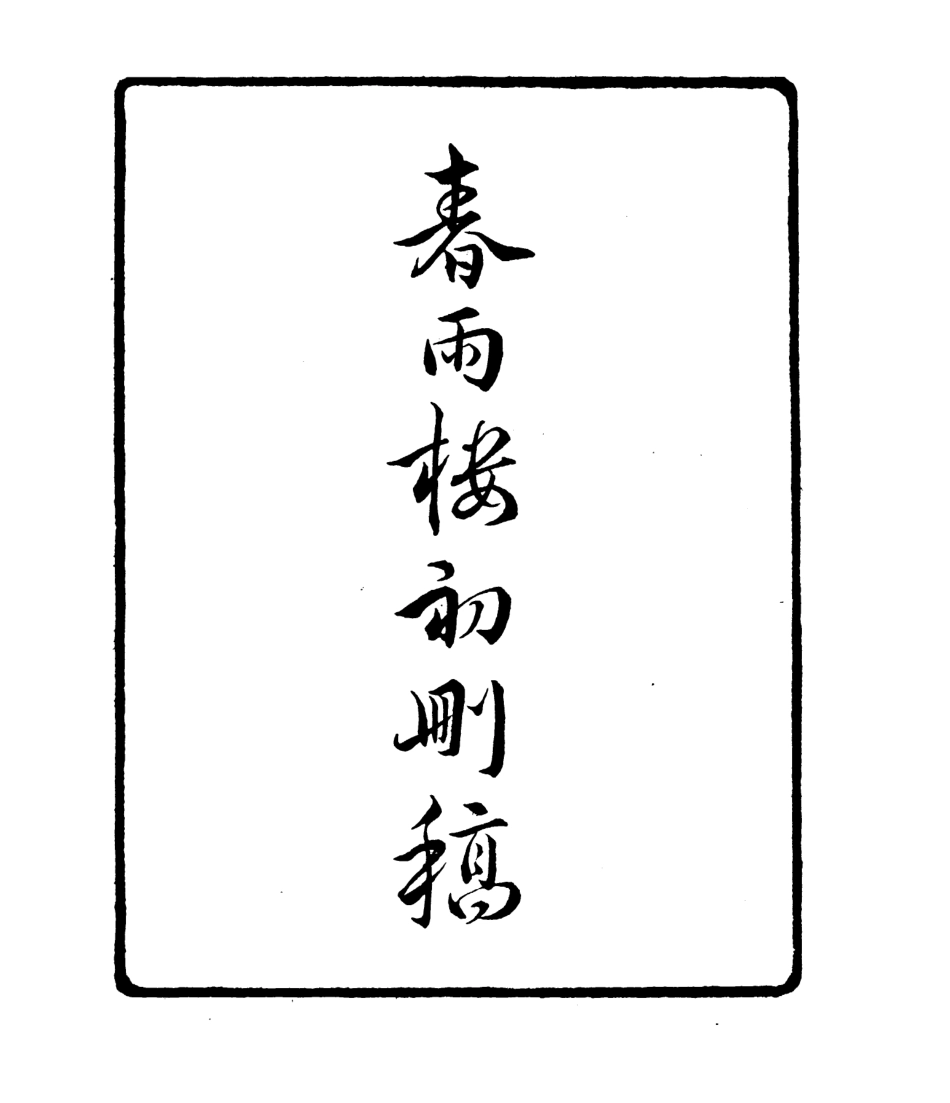 春雨楼初刪稿